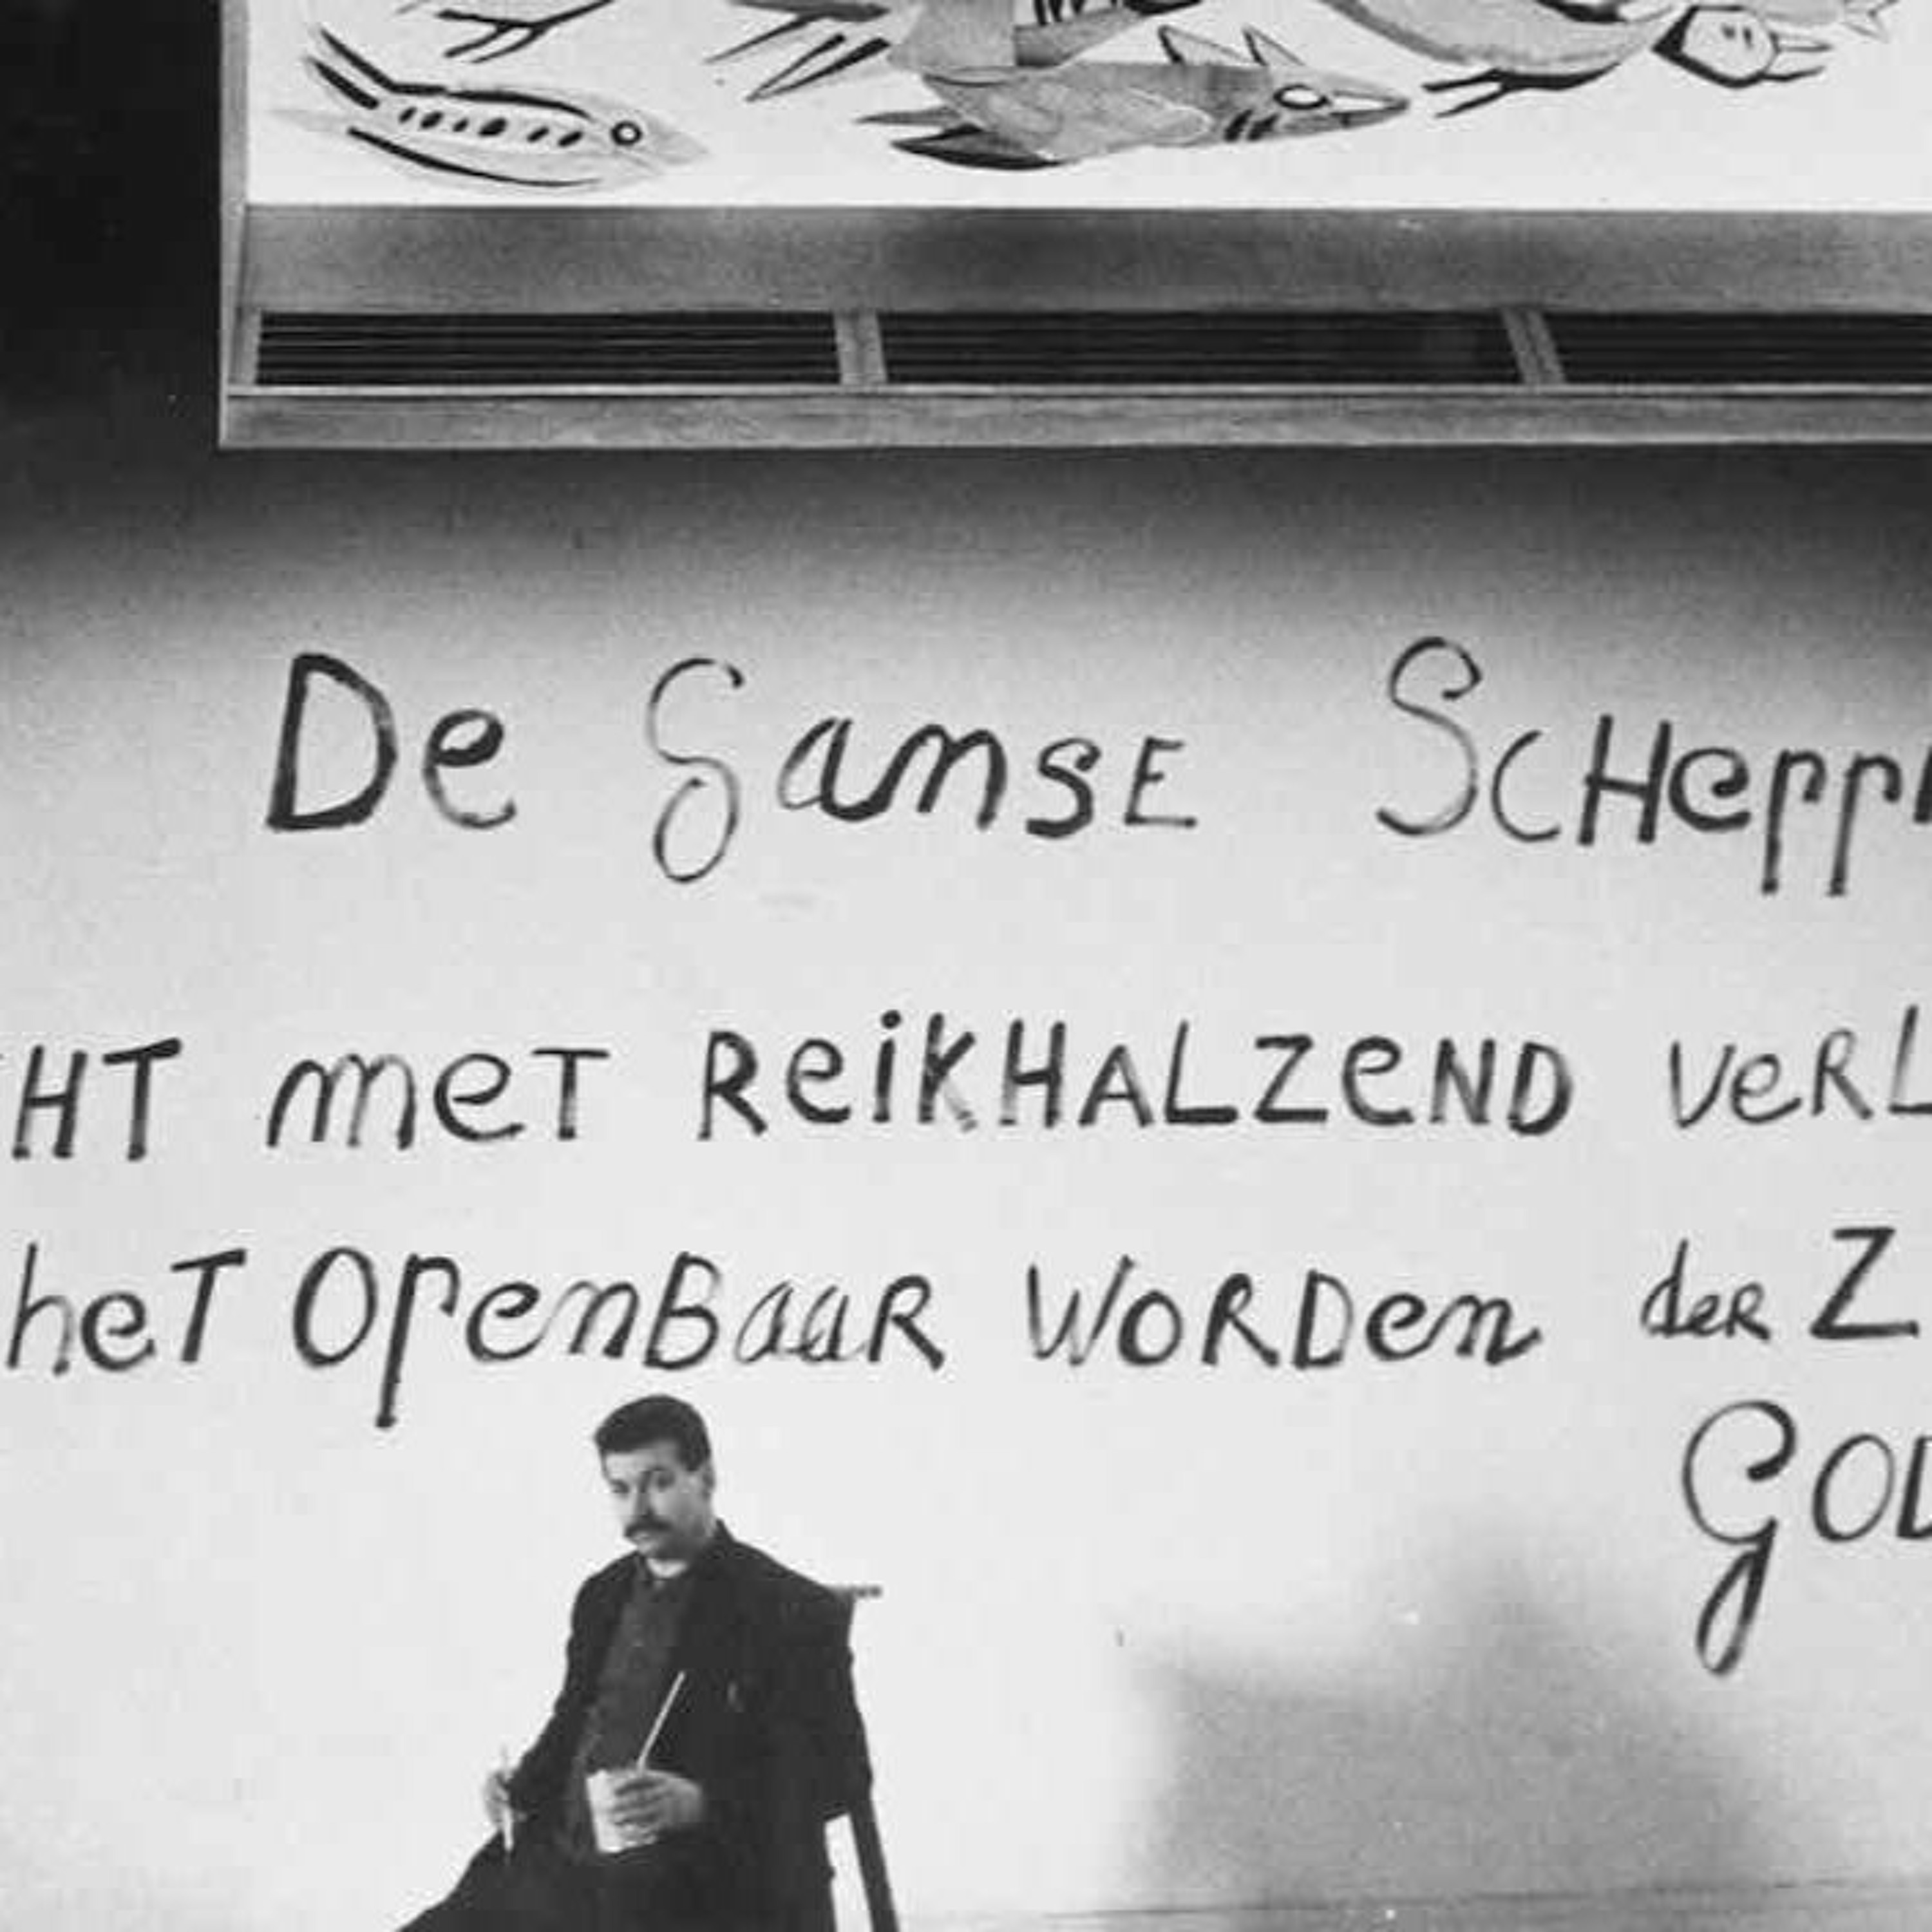 De ganse Schepp
HT met reikhalzend verl
het openbaar worden der Z
God